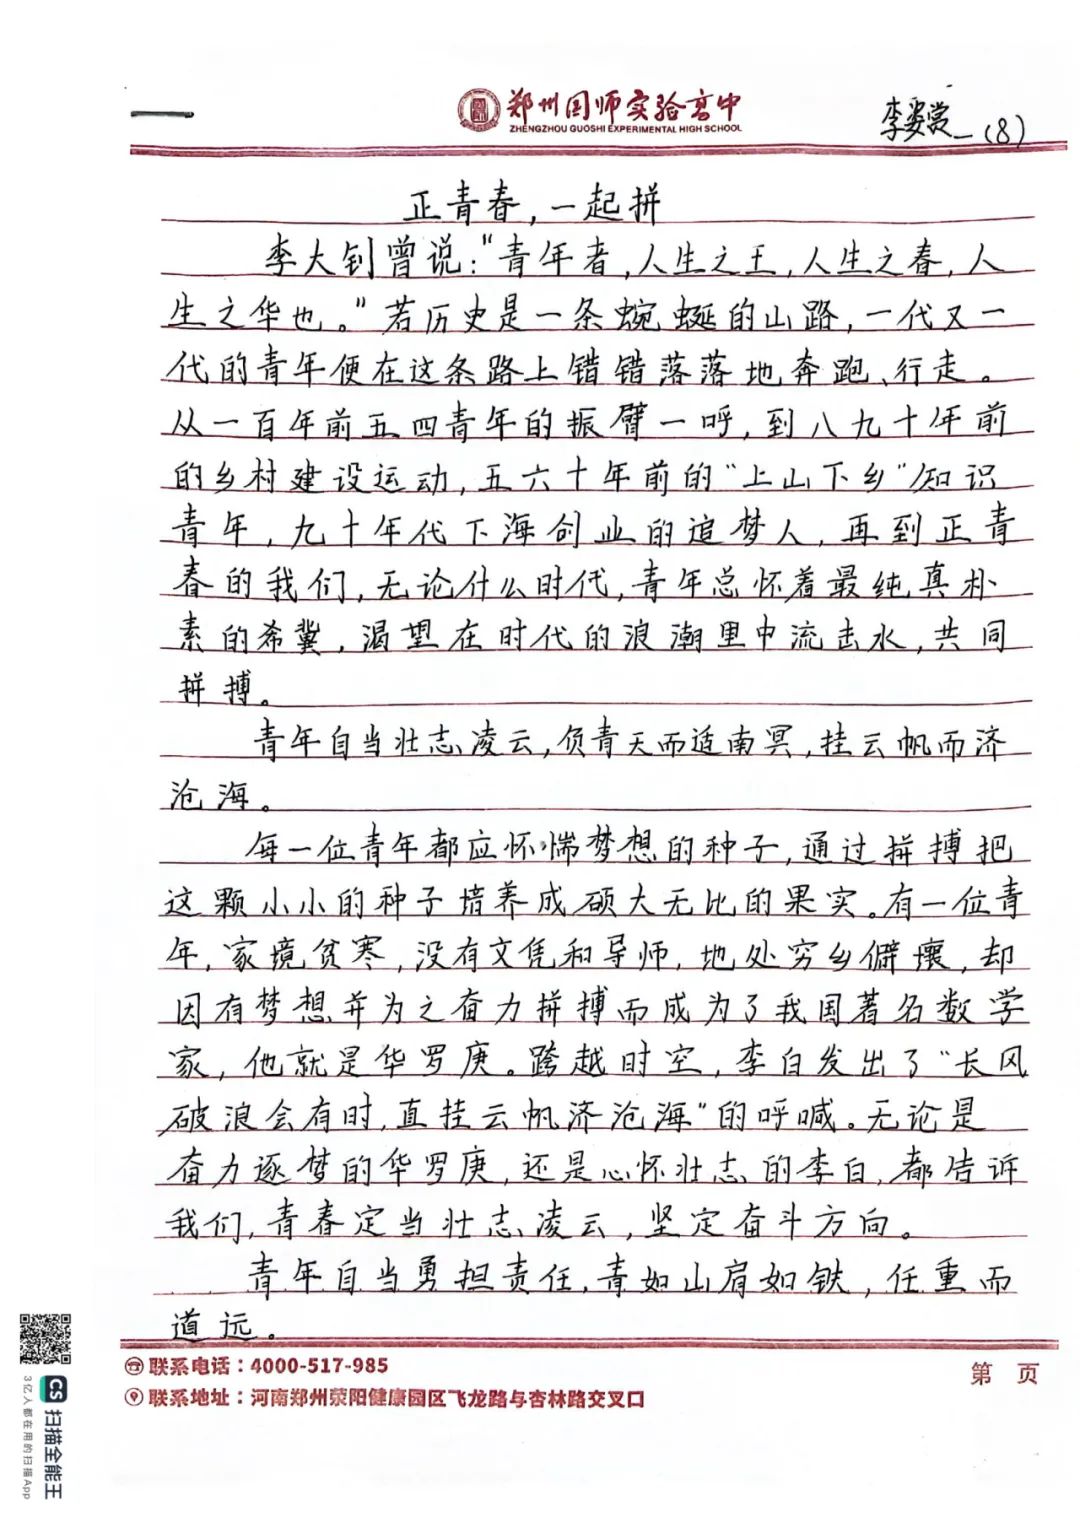 郑州国师实验高中
ZHENGZHOU GUOSHI EXPERIMENTAL HIGH SCHOOL
李姿赏 (8)
正青春,一起拼
李大钊曾说:"青年者,人生之王,人生之春,人
生之华也。"若历史是一条蜿蜒的山路,一代又一
代的青年便在这条路上错错落落地奔跑、行走。
从一百年前五四青年的振臂一呼,到八九十年前
的乡村建设运动,五六十年前的"上山下乡"知识
青年,九十年代下海创业的追梦人,再到正青
春的我们,无论什么时代,青年总怀着最纯真朴
素的希冀,渴望在时代的浪潮里中流击水,共同
拼搏。
青年自当壮志凌云,负青天而适南冥,挂云帆而济
沧海。
每一位青年都应怀惴梦想的种子,通过拼搏把
这颗小小的种子培养成硕大无比的果实。有一位青
年,家境贫寒,没有文凭和导师,地处穷乡僻壤,却
因有梦想并为之奋力拼搏而成为了我国著名数学
家,他就是华罗庚。跨越时空,李白发出了"长风
破浪会有时,直挂云帆济沧海"的呼喊。无论是
奋力逐梦的华罗庚,还是心怀壮志的李白,都告诉
我们,青春定当壮志凌云,坚定奋斗方向。
青年自当勇担责任,青如山肩如铁,任重而
道远。
联系电话:4000-517-985
联系地址:河南郑州荥阳健康园区飞龙路与杏林路交叉口
第 页
CS 扫描全能王
3亿人都在用的扫描App